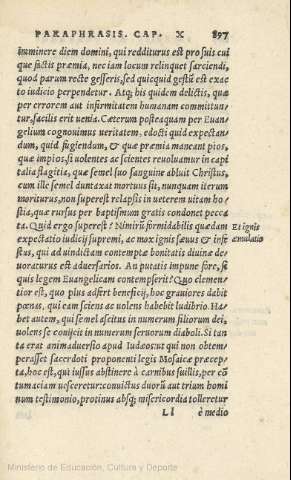 PARAPHRASIS. CAP. X 897
imminere diem domini, qui redditurus est pro suis cui
que factis præmia, nec iam locum relinquet sarciendi,
quod parum recte gesseris, sed quicquid gestũ est exac
to iudicio perpendetur. Atq; his quidem delictis, quæ
per errorem aut infirmitatem humanam committun/
tur, facilis erit uenia. Cæterum posteaquam per Euan/
gelium cognouimus ueritatem, edocti quid expectan/
dum, quid fugiendum, & quæ præmia maneant pios,
quæ impios, si uolentes ac scientes reuoluamur in capi
talia flagitia, quæ semel suo sanguine abluit Christus,
cum ille semel duntaxat mortuus sit, nunquam iterum
moriturus, non superest relapsis in ueterem uitam ho/
stia, quæ rursus per baptismum gratis condonet pecca
ta. Quid ergo superest? Nimirũ formidabilis quædam
expectatio iudicij supremi, ac mox ignis sæuus & infe
stus, qui ad uindictam contemptæ bonitatis diuinæ de/
uoraturus est aduersarios. An putatis impune fore, si
quis legem Euangelicam contempserit? Quo clemen/
tior est, quo plus adfert beneficij, hoc grauiores dabit
pœnas, qui eam sciens ac uolens habebit ludibrio. Ha/
bet autem, qui semel ascitus in numerum filiorum dei,
uolens se conijcit in numerum seruorum diaboli. Si tan
ta erat animaduersio apud Iudæos, ut qui non obtem/
perasset sacerdoti proponenti legis Mosaicæ præcep/
ta, hoc est, qui iussus abstinere à carnibus suillis, per cõ
tumaciam uesceretur: conuictus duorũ aut trium homi
num testimonio, protinus absq; misericordia tolleretur
Ll è medio
Et ignis
æmulatio
Ministerio de Educación, Cultura y Deporte